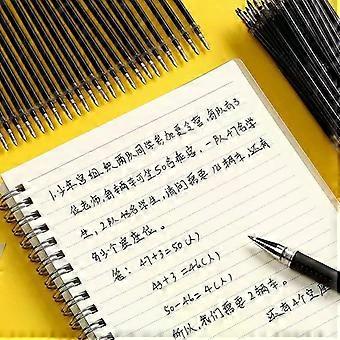 1.少年宫组织两队同学参加夏令营,每队有3
位老师,每辆车可坐50名同学,一队47名学
生,2队43名学生,请问需要几辆车,还有
多少个空座位。
答: 47+3=50(人)
43+3=46(人)
50-46=4(人)
所以,我们需要2辆车。
还有4个空座